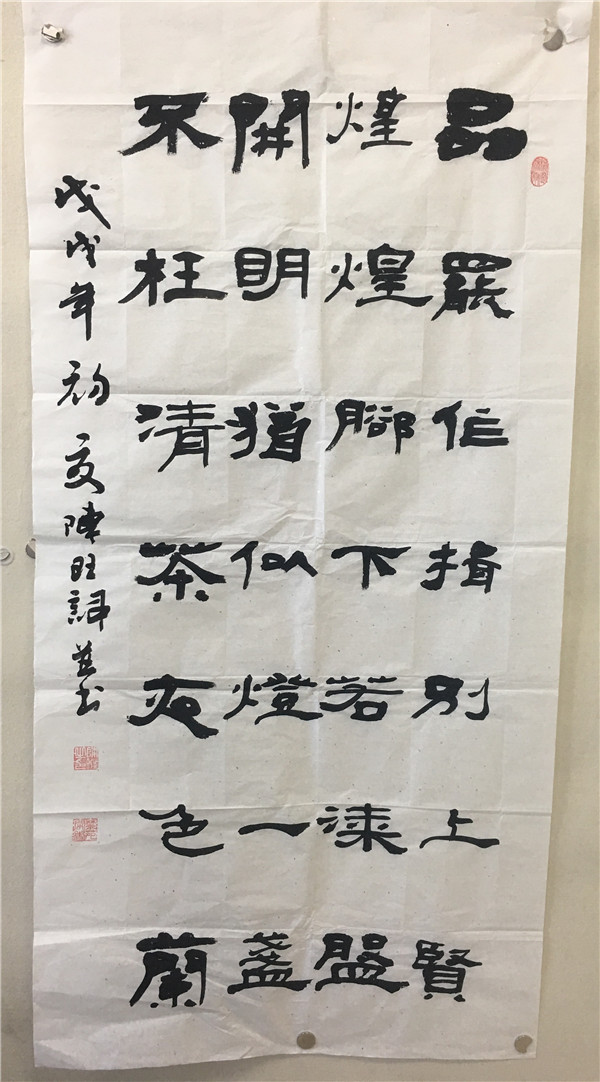 品罷作揖別上賢
煌煌腳下若盟
開明猶似燈一盞
不枉清茶夜色蘭
戊戌年初夏陳旺詞並書